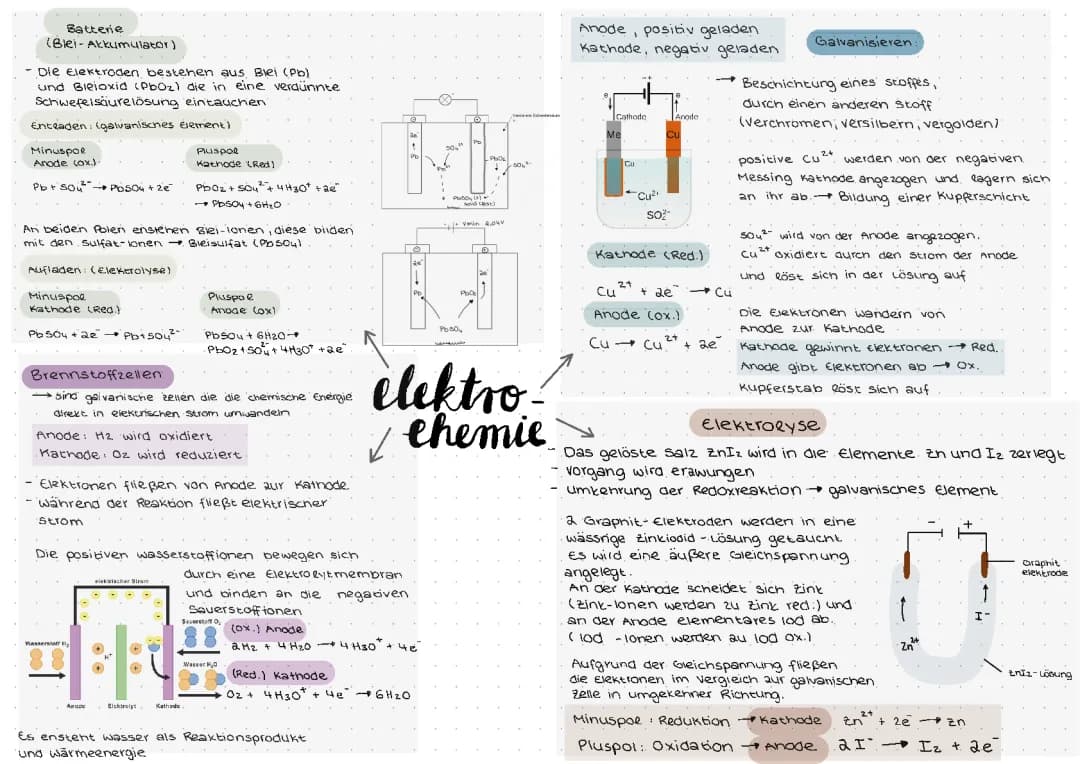 Batterie
(Blei-Akkumulator)
- Die Elektroden bestehen aus Blei (Pb)
und Bleioxid (PbO2) die in eine verdünnte
Schwefelsäurelösung eintauchen
Entladen: (galvanisches Element)
Minuspol
Anode (ox.)
Pluspol
Kathode (Red)
Pb + SO4²⁻ → PbSO4 + 2e⁻
PbO2 + SO4²⁻ + 4H3O⁺ + 2e⁻
→ PbSO4 + 6H2O
An beiden Polen enstehen Blei-Ionen, diese bilden
mit den Sulfat-Ionen → Bleisulfat (PbSO4)
Aufladen: (Elektrolyse)
Minuspol
Kathode (Red.)
Pluspol
Anode (ox)
PbSO4 + 2e⁻ → Pb + SO4²⁻
PbSO4 + 6H2O →
PbO2 + SO4²⁻ + 4H3O⁺ + 2e⁻
2e⁻
Pb
SO4²⁻
Pb
PbO2
SO4²⁻
2,04V
2e⁻
Pb
2e⁻
PbO2
PbSO4
Anode, positiv geladen
Kathode, negativ geladen
Galvanisieren:
e
e
Cathode
Anode
Me
Cu
Cu
Cu²⁺
SO₄²⁻
→ Beschichtung eines Stoffes,
durch einen anderen Stoff
(verchromen, versilbern, vergolden)
positive Cu²⁺ werden von der negativen
Messing Kathode angezogen und lagern sich
an ihr ab. → Bildung einer Kupferschicht
SO4²⁻ wird von der Anode angezogen.
Cu²⁺ oxidiert durch den Strom der Anode
und löst sich in der Lösung auf
Kathode (Red.)
Cu²⁺ + 2e⁻ → Cu
Anode (ox.)
Cu → Cu²⁺ + 2e⁻
Die Elektronen wandern von
Anode zur Kathode
Kathode gewinnt Elektronen → Red.
Anode gibt Elektronen ab → Ox.
Kupferstab löst sich auf
elektro-
chemie
Brennstoffzellen
→ sind galvanische Zellen die die chemische Energie
direkt in elektrischen Strom umwandeln
Anode: H2 wird oxidiert
Kathode: O2 wird reduziert
- Elektronen fließen von Anode zur Kathode
- während der Reaktion fließt elektrischer
Strom
Die positiven Wasserstoffionen bewegen sich
durch eine Elektrolytmembran
und binden an die negativen
Sauerstoffionen
elektrischer Strom
Wasserstoff H₂
H⁺
Sauerstoff O₂
Wasser H₂O
Anode
Elektrolyt
Kathode
(Ox.) Anode
2H2 + 4H2O → 4H3O⁺ + 4e⁻
(Red.) Kathode
O2 + 4H3O⁺ + 4e⁻ → 6H2O
Es ensteht Wasser als Reaktionsprodukt
und Wärmeenergie
Elektrolyse
- Das gelöste Salz ZnI2 wird in die Elemente Zn und I2 zerlegt
- Vorgang wird erzwungen
- Umkehrung der Redoxreaktion → galvanisches Element
2 Graphit-Elektroden werden in eine
wässrige Zinkiodid-Lösung getaucht
Es wird eine äußere Gleichspannung
angelegt.
An der Kathode scheidet sich Zink
(Zink-Ionen werden zu Zink red.) und
an der Anode elementares Iod ab.
(Iod-Ionen werden zu Iod ox.)
Aufgrund der Gleichspannung fließen
die Elektronen im Vergleich zur galvanischen
Zelle in umgekehrter Richtung.
Graphit
elektrode
Zn²⁺
I⁻
ZnI2-Lösung
Minuspol: Reduktion → Kathode Zn²⁺ + 2e⁻ → Zn
Pluspol: Oxidation → Anode 2I⁻ → I2 + 2e⁻